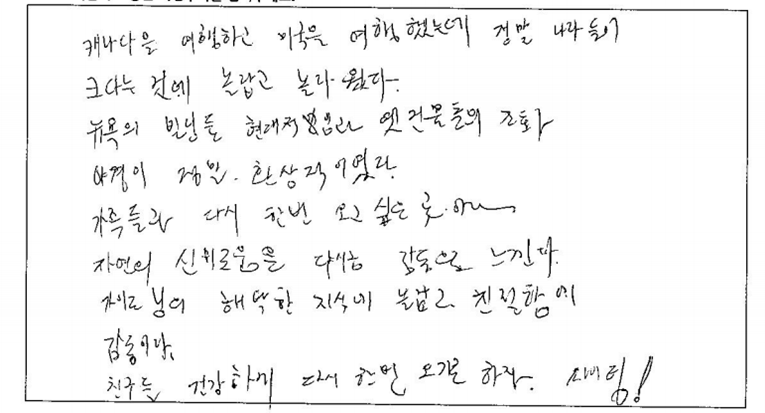 캐나다을 여행하고 미국을 여행 했는데 정말 나라들이
크다는 것에 놀랍고 놀라 웠다.
뉴욕의 빌딩들 현대적 옛건물들의 조화
야경이 정말. 환상적이였다.
가족들과 다시 한번 오고 싶은 곳.
자연의 신비로움을 다시금 감동으로 느낀다.
가이드님의 해박한 지식에 놀랍고 친절함에
감동이다.
친구들 건강하게 다시 한번 오기로 하자.